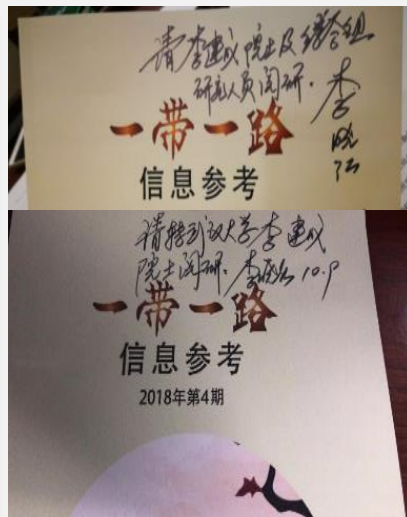 请李建成院士及综合组
研究人员阅研.
李晓红
一带一路
信息参考
请转武汉大学李建成
院士阅研. 李晓红 10.9
一带一路
信息参考
2018年第4期